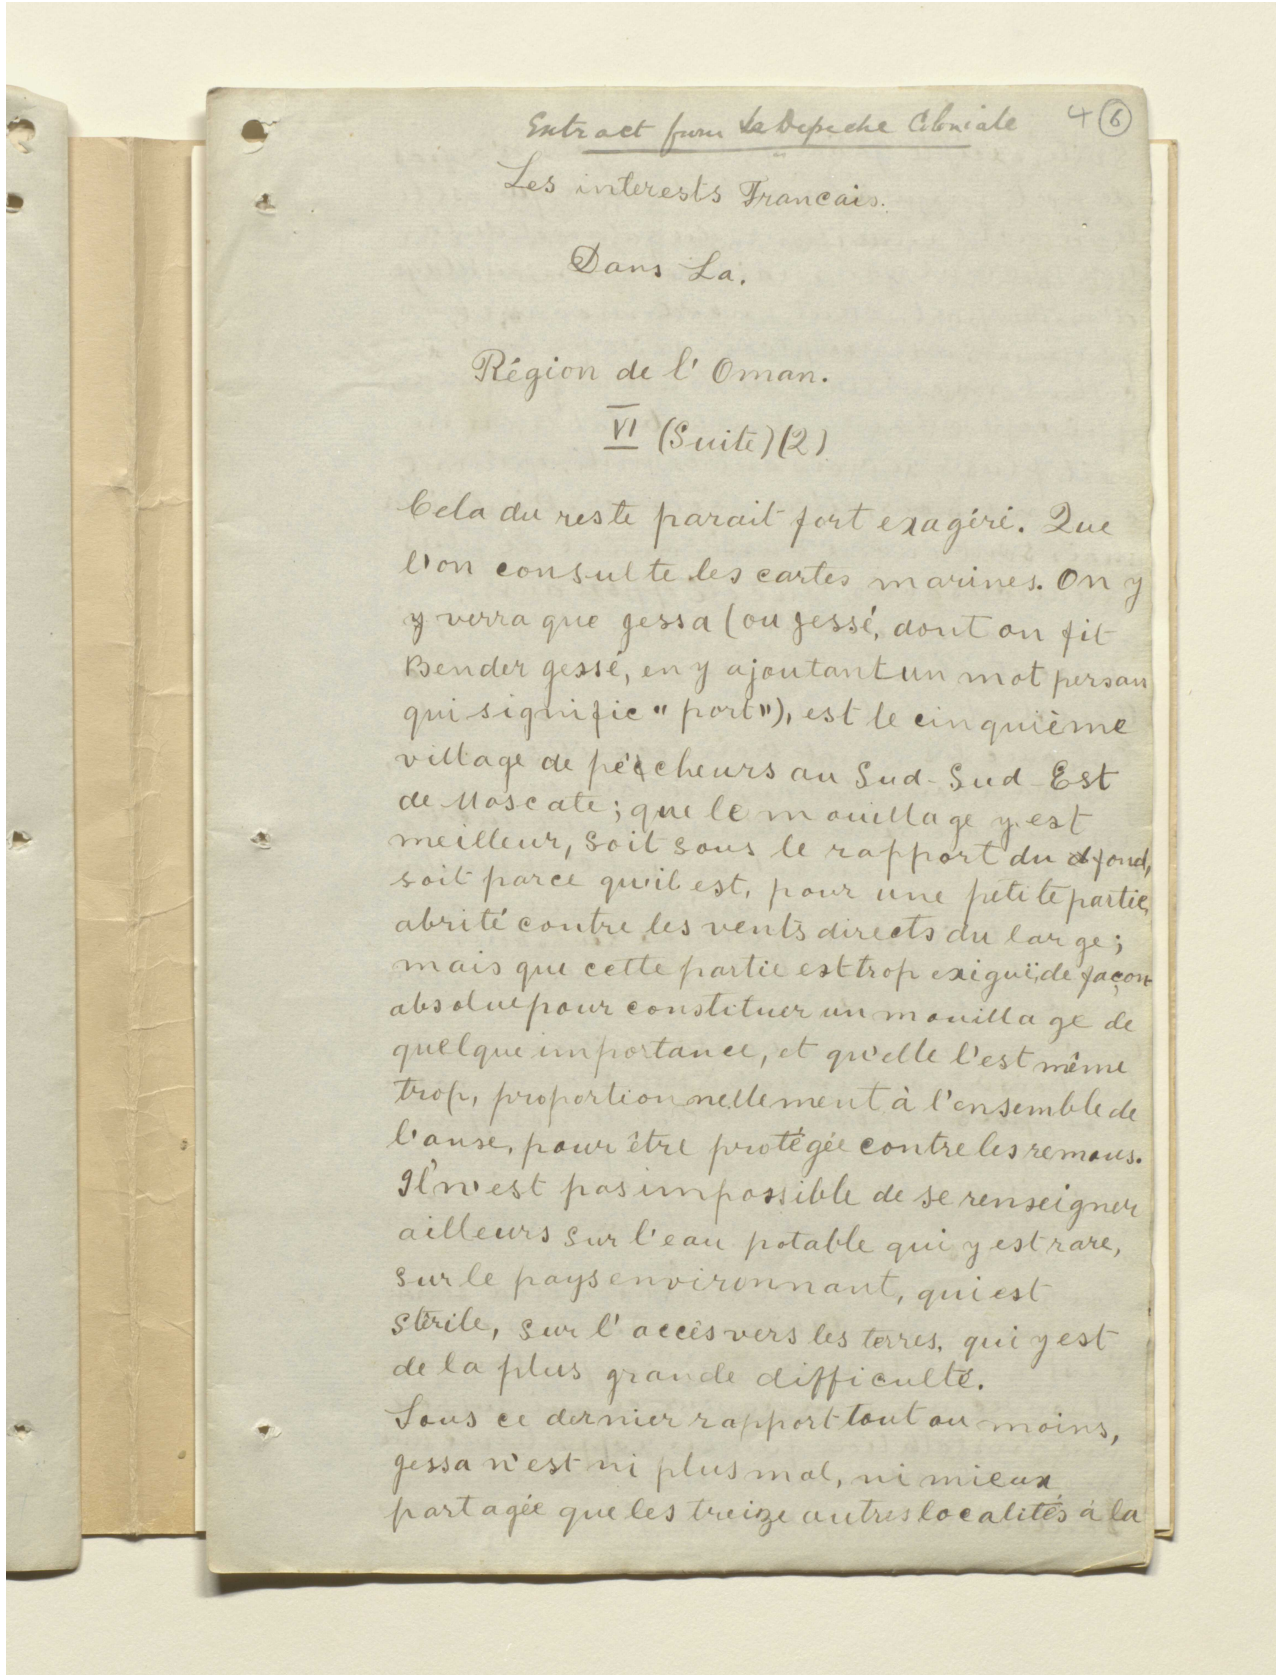 Extract from La Depeche Coloniale
4 6
Les interests Francais.
Dans La.
Région de l' Oman.
VI (Suite) (2)
Cela du reste parait fort exagéré. Que
l'on consulte les cartes marines. On y
y verra que gessa (ou gessé, dont on fit
Bender gessé, en y ajoutant un mot persan
qui signifie " port"), est le cinquième
village de pécheurs au Sud-Sud-Est
de Mascate; que le mouillage y est
meilleur, soit sous le rapport du fond,
soit parce qu'il est, pour une petite partie,
abrité contre les vents directs du large;
mais que cette partie est trop exiguë, de façon
absolue pour constituer un mouillage de
quelque importance, et qu'elle l'est même
trop, proportionnellement à l'ensemble de
l'anse, pour être protégée contre les remous.
Il n'est pas impossible de se renseigner
ailleurs sur l'eau potable qui y est rare,
sur le pays environnant, qui est
stérile, sur l'accès vers les terres, qui y est
de la plus grande difficulté.
Sous ce dernier rapport tout au moins,
gessa n'est ni plus mal, ni mieux
partagée que les treize autres localités à la